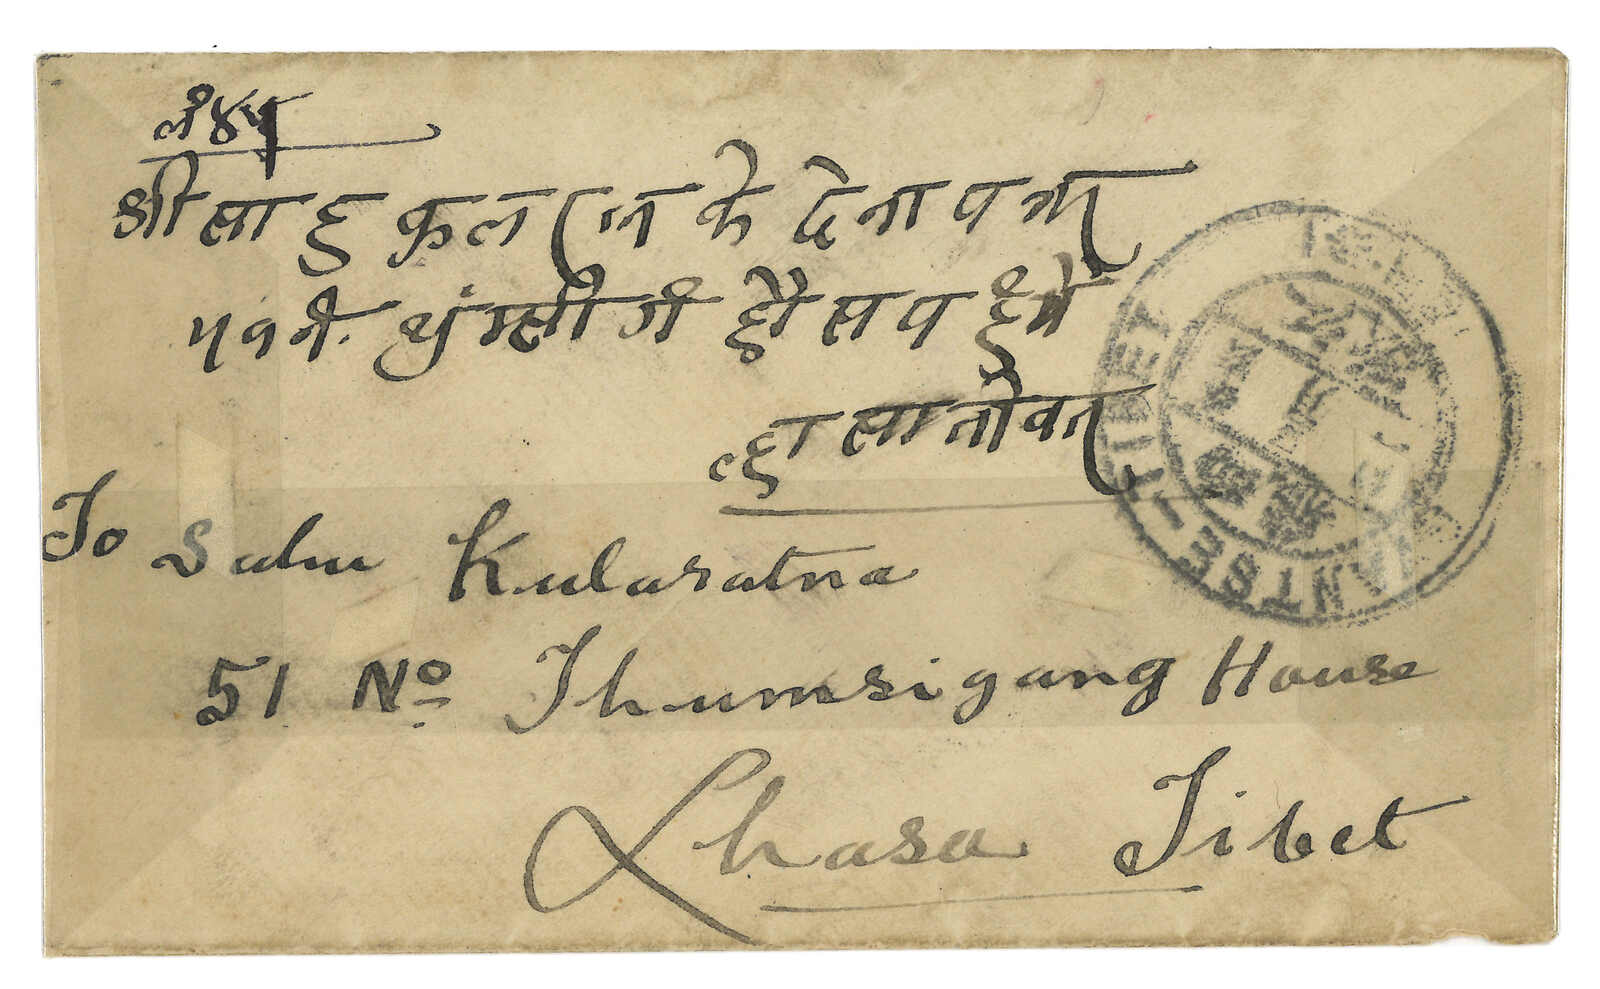 नं ४५
श्री साहु कुलरत्न के देना पत्र
५१ नं. थुंम्सीगं हौस
ल्हासा तीवत्
To Sahu Kulasatna
51 No Thumsigang House
Lhasa Tibet
ANTSE – TIBET